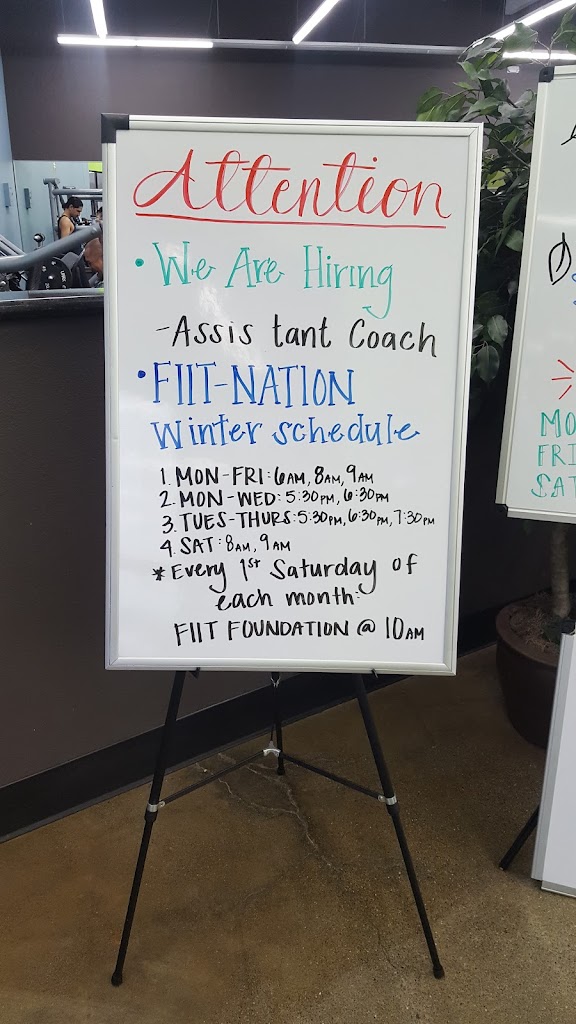 Attention
• We Are Hiring
- Assis tant Coach
• FIIT-NATION
Winter schedule
1. MON-FRI: 6AM, 8AM, 9AM
2. MON-WED: 5:30PM, 6:30PM
3. TUES-THURS: 5:30PM, 6:30PM, 7:30PM
4. SAT: 8AM, 9AM
* Every 1st Saturday of
each month:
FIIT FOUNDATION @ 10AM
MO
FRI
SAT